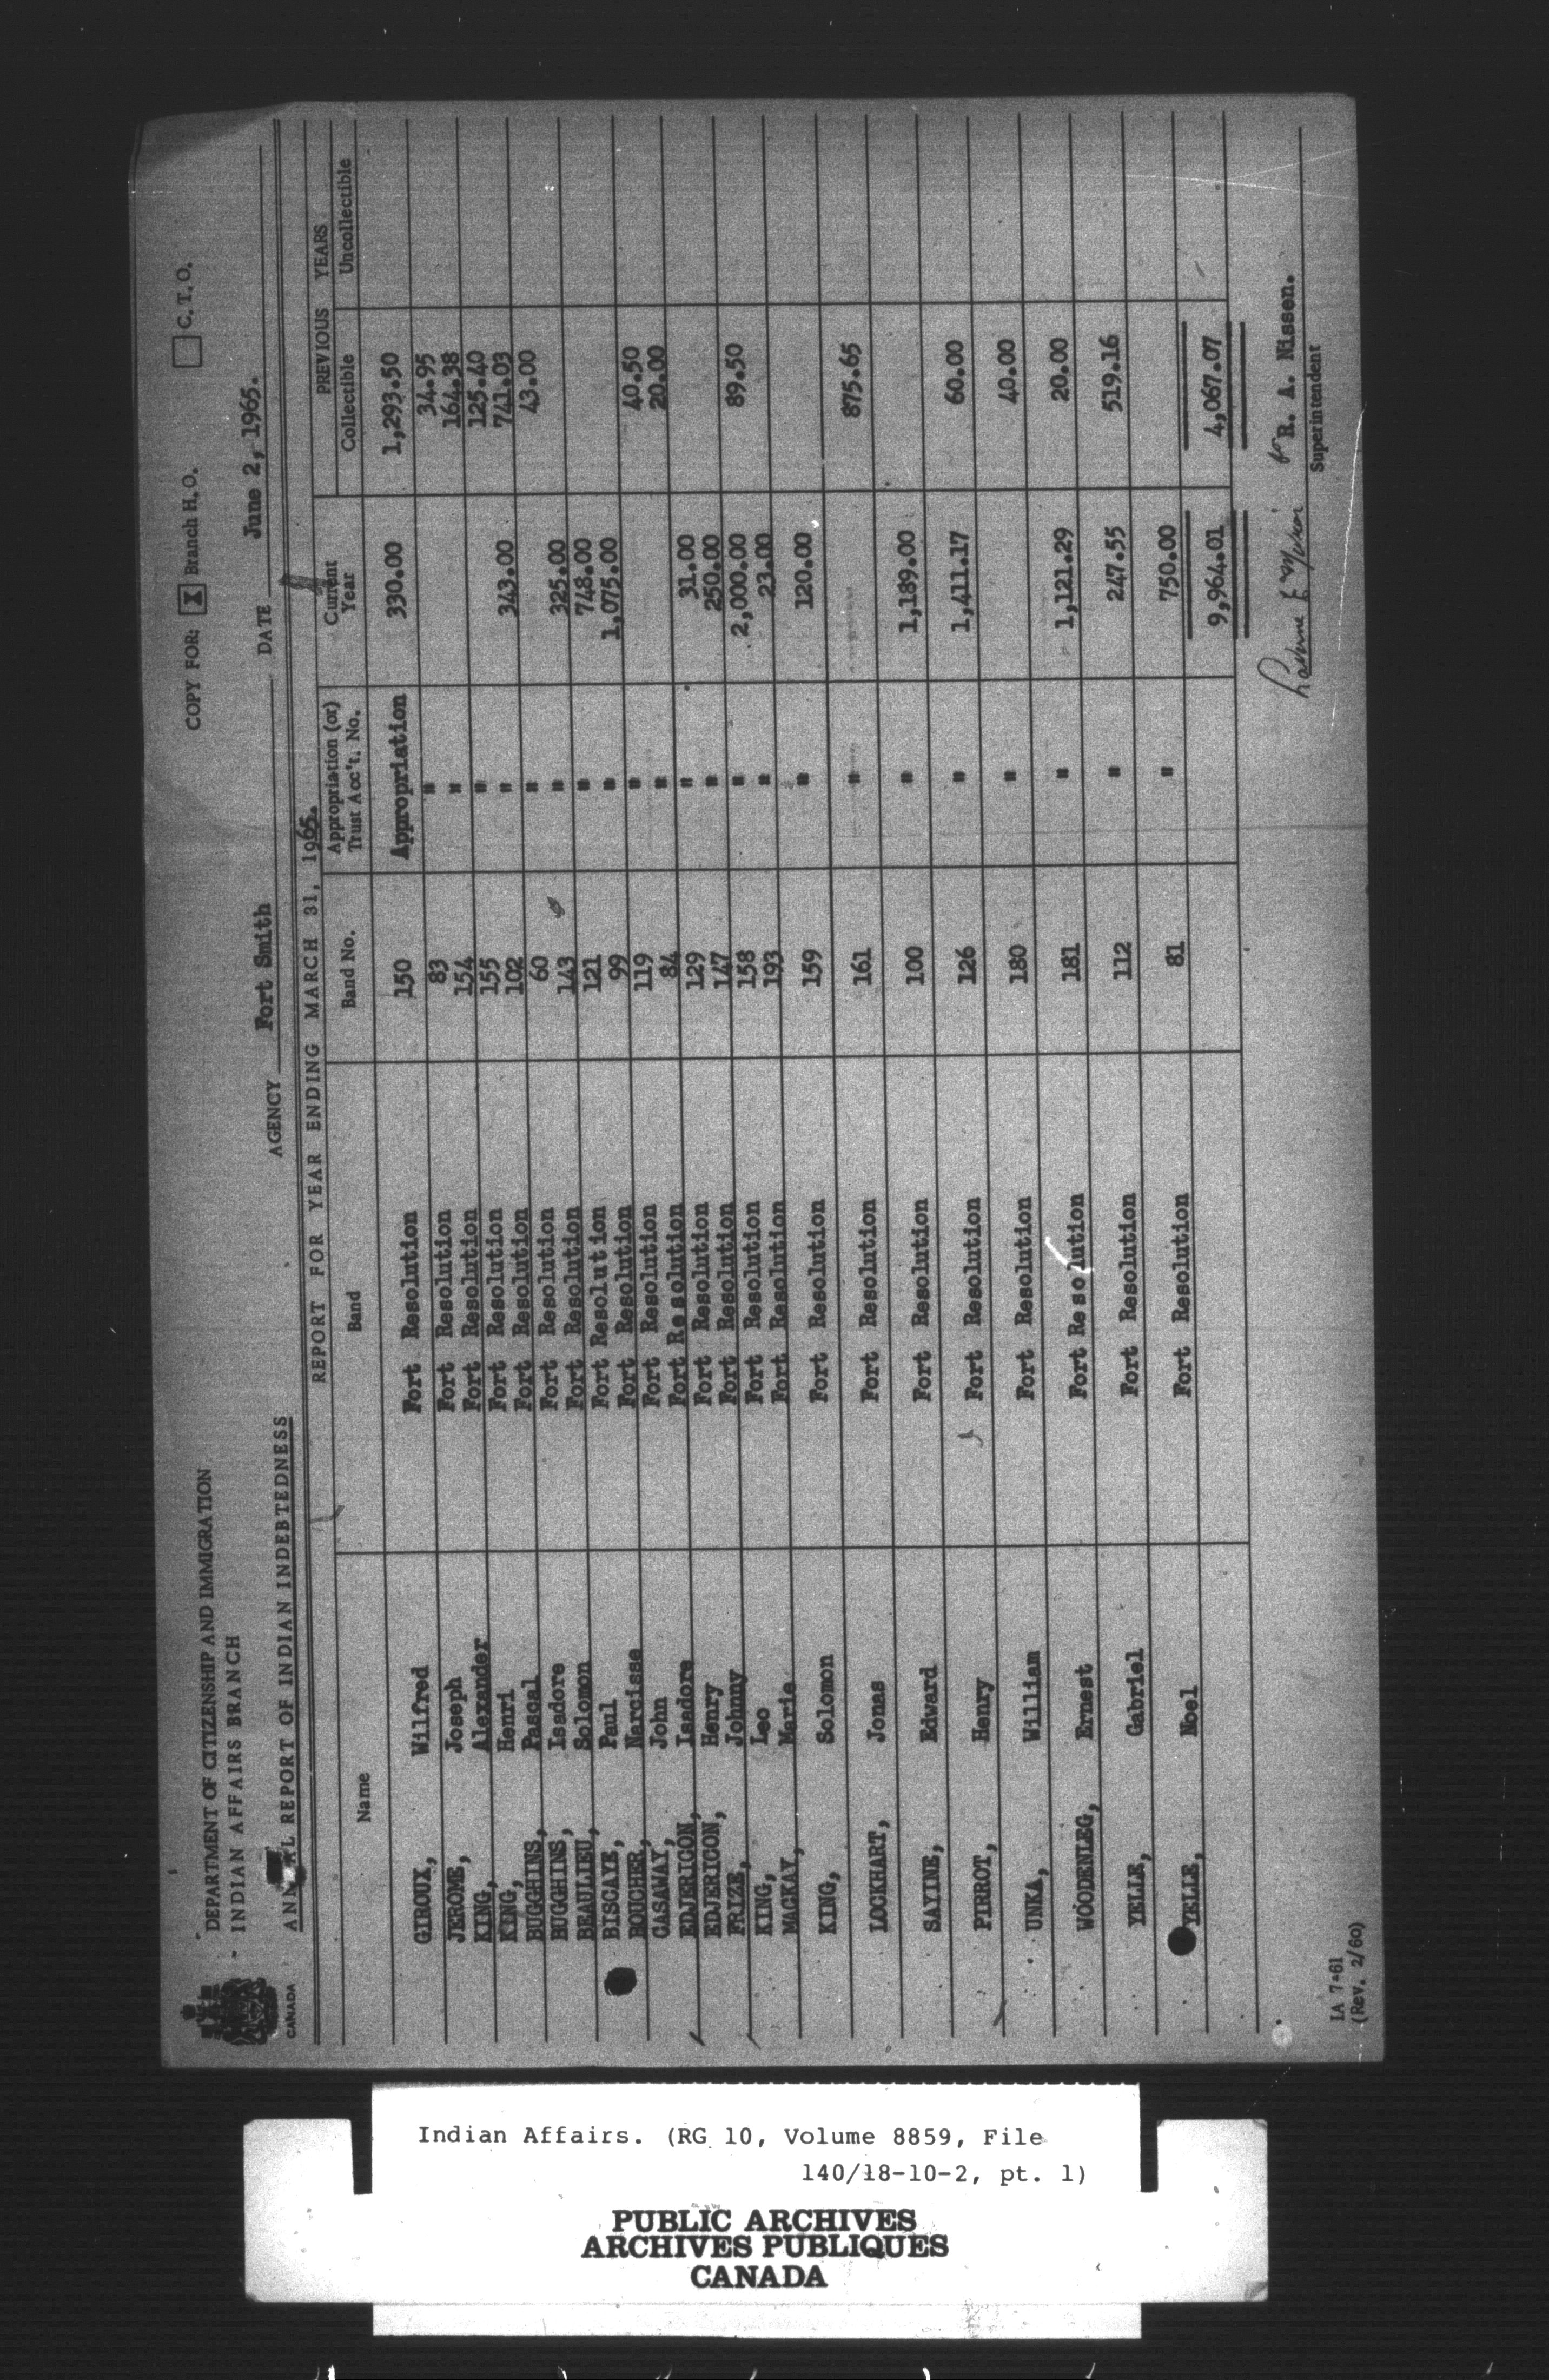 CANADA
DEPARTMENT OF CITIZENSHIP AND IMMIGRATION
INDIAN AFFAIRS BRANCH
COPY FOR: X Branch H.O. C.T.O.
ANNUAL REPORT OF INDIAN INDEBTEDNESS
AGENCY Fort Smith DATE June 2, 1965.
REPORT FOR YEAR ENDING MARCH 31, 1965.
Name Band Band No. Appropriation (or) Trust Acc't. No. Current Year PREVIOUS YEARS Collectible Uncollectible
GIROUX, Wilfred Fort Resolution 150 Appropriation 330.00 1,293.50
JEROME, Joseph Fort Resolution 83 " 34.95
KING, Alexander Fort Resolution 154 " 164.38
KING, Henri Fort Resolution 155 " 125.40
BUGGHINS, Pascal Fort Resolution 102 " 343.00 741.03
BUGGHINS, Isadore Fort Resolution 60 " 43.00
BEAULIEU, Solomon Fort Resolution 143 " 325.00
BISCAYE, Paul Fort Resolution 121 " 748.00
BOUCHER, Narcisse Fort Resolution 99 " 1,075.00
CASAWAY, John Fort Resolution 119 " 40.50
EDJERICON, Isadore Fort Resolution 84 " 20.00
EDJERICON, Henry Fort Resolution 129 " 31.00
FRIZE, Johnny Fort Resolution 147 " 250.00
KING, Leo Fort Resolution 158 " 2,000.00 89.50
MACKAY, Marie Fort Resolution 193 " 23.00
KING, Solomon Fort Resolution 159 " 120.00
LOCKHART, Jonas Fort Resolution 161 " 875.65
SAYINE, Edward Fort Resolution 100 " 1,189.00
PIRROT, Henry Fort Resolution 126 " 1,411.17 60.00
UNKA, William Fort Resolution 180 " 40.00
WOODENLEG, Ernest Fort Resolution 181 " 1,121.29 20.00
YELLE, Gabriel Fort Resolution 112 " 247.55 519.16
YELLE, Noel Fort Resolution 81 " 750.00
9,964.01 4,067.07
for R. A. Nissen.
Superintendent
IA 7-61
(Rev. 2/60)
Indian Affairs. (RG 10, Volume 8859, File
140/18-10-2, pt. 1)
PUBLIC ARCHIVES
ARCHIVES PUBLIQUES
CANADA